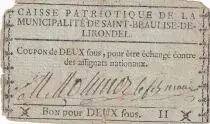 CAISSE PATRIOTIQUE DE LA
MUNICIPALITÉ DE SAINT-BEAULISE-DE-
LIRONDEL.
COUPON de DEUX sous, pour être échangé contre
des assignats nationaux.
BON pour DEUX sous. II